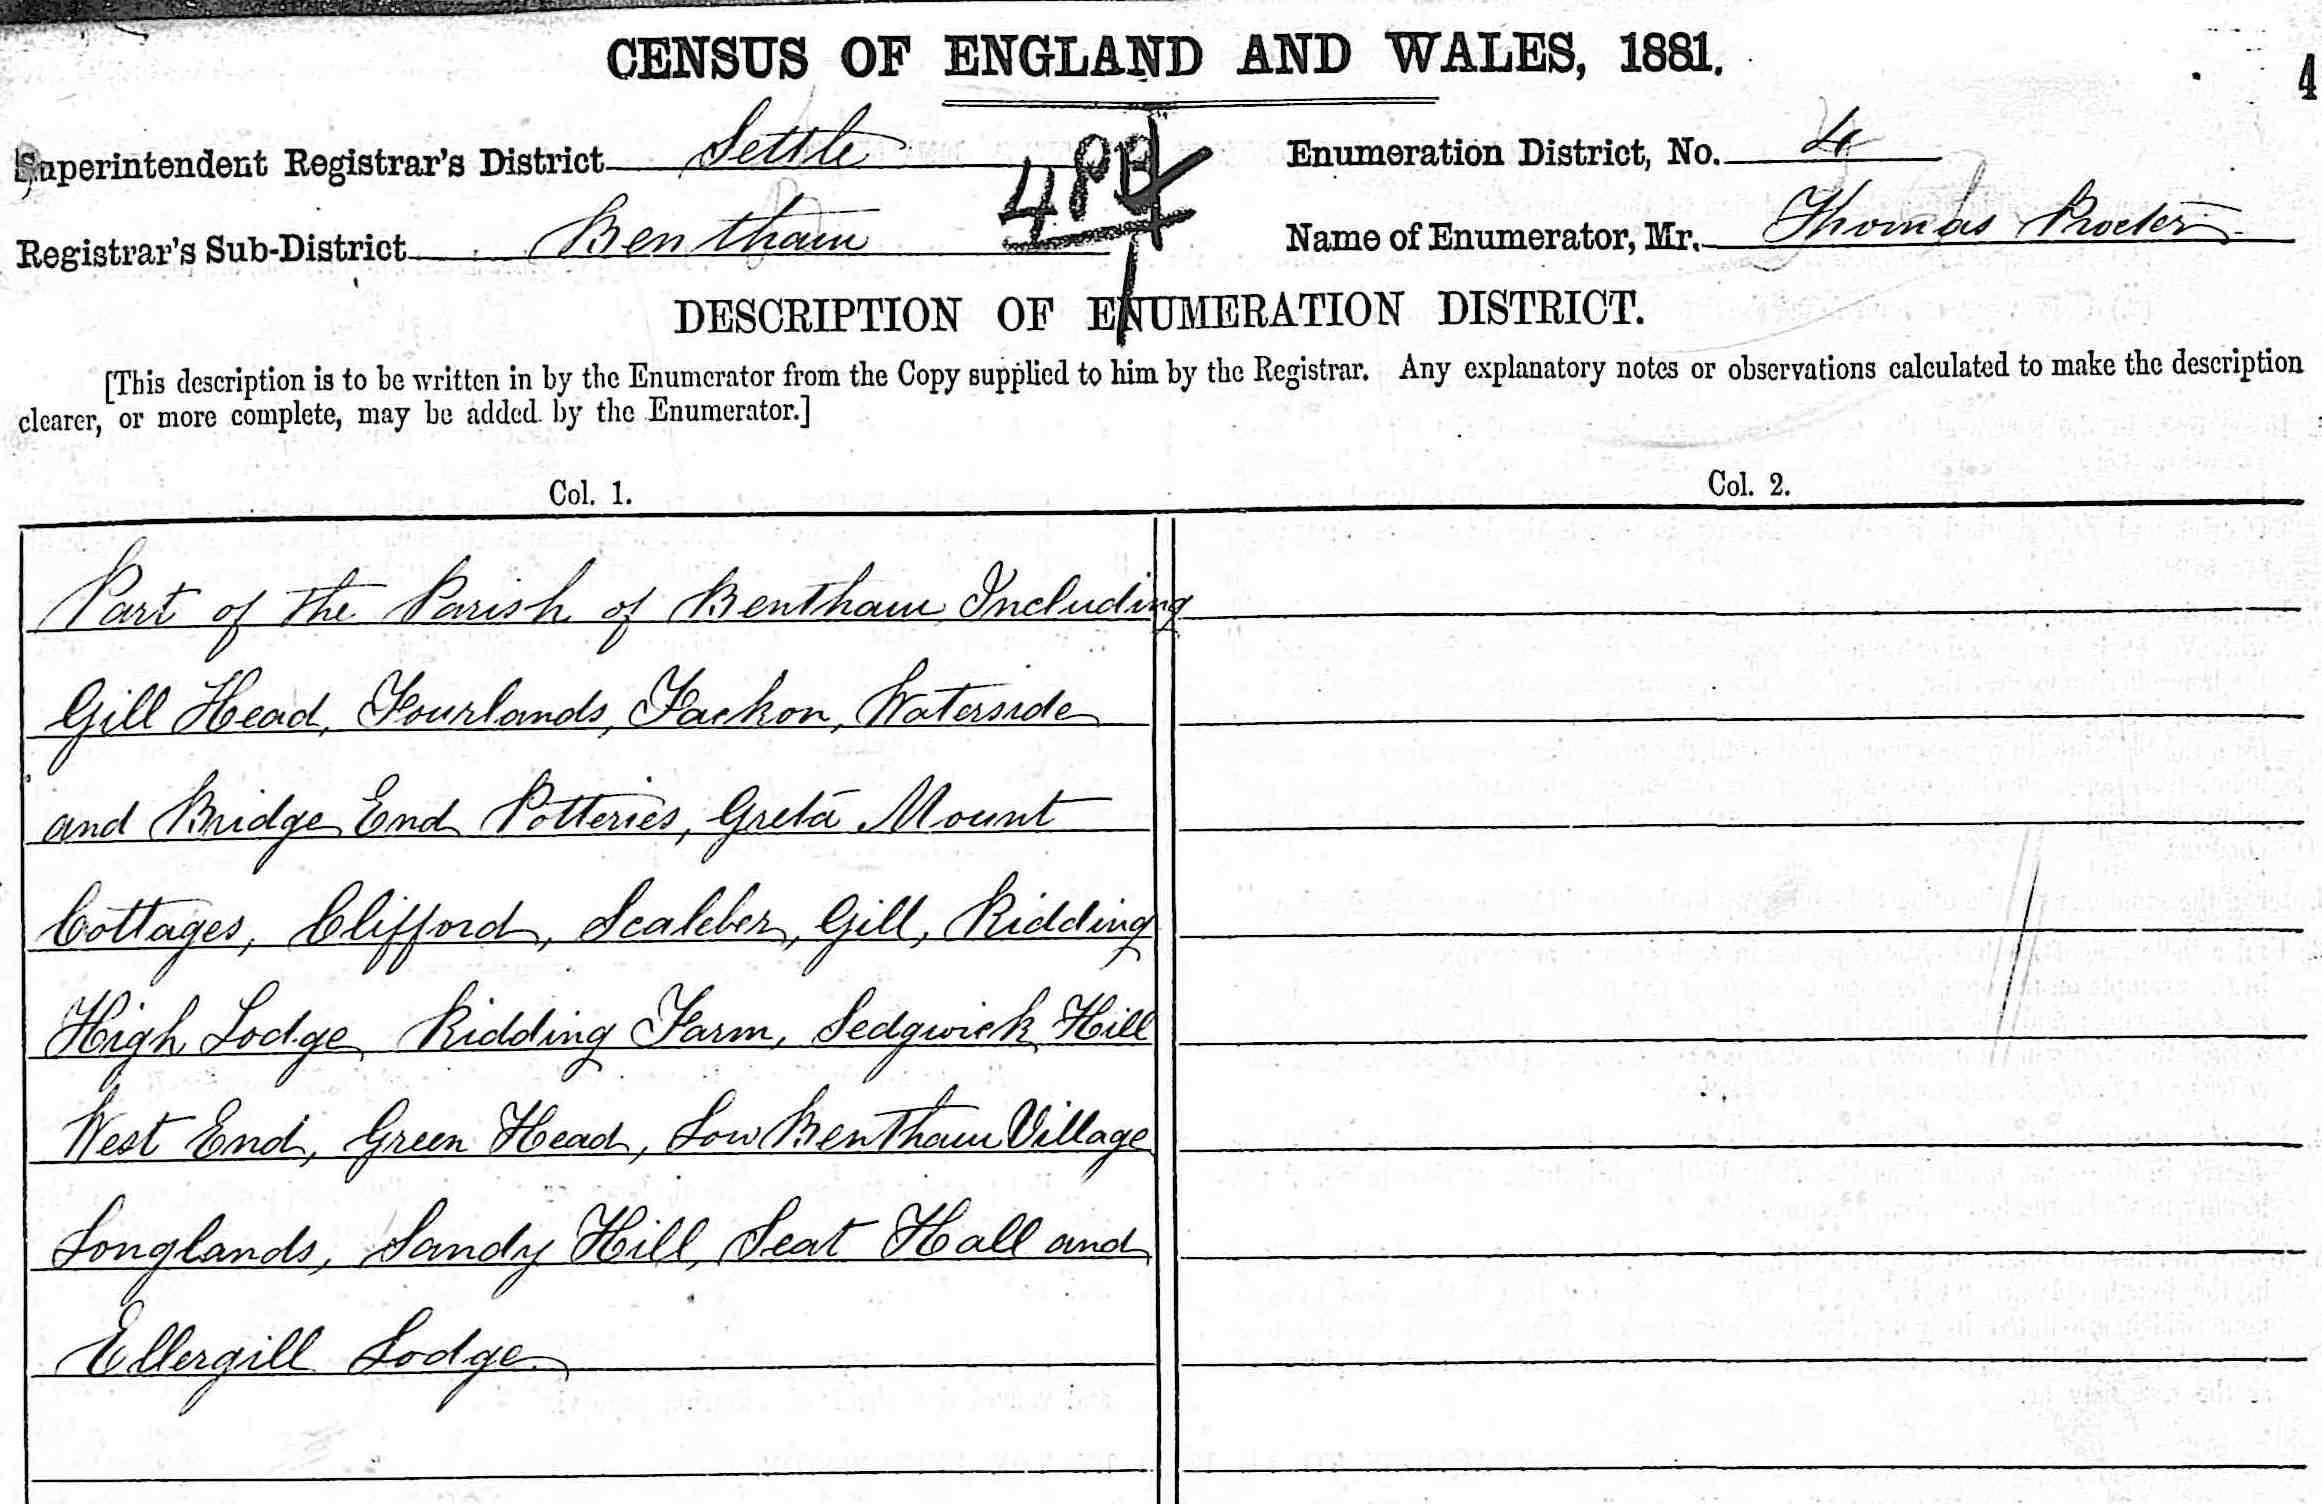 CENSUS OF ENGLAND AND WALES, 1881.
4
Superintendent Registrar's District Settle
Enumeration District, No. 4
Registrar's Sub-District Bentham
Name of Enumerator, Mr. Thomas Procter
DESCRIPTION OF ENUMERATION DISTRICT.
[This description is to be written in by the Enumerator from the Copy supplied to him by the Registrar. Any explanatory notes or observations calculated to make the description
clearer, or more complete, may be added by the Enumerator.]
Col. 1.
Col. 2.
Part of the Parish of Bentham Including
Gill Head, Fourlands, Fackon, Waterside
and Bridge End Potteries, Greta Mount
Cottages, Clifford, Scaleber, Gill, Ridding
High Lodge Ridding Farm, Sedgwick Hill
West End, Green Head, Low Bentham Village
Longlands, Sandy Hill, Seat Hall and
Ellergill Lodge